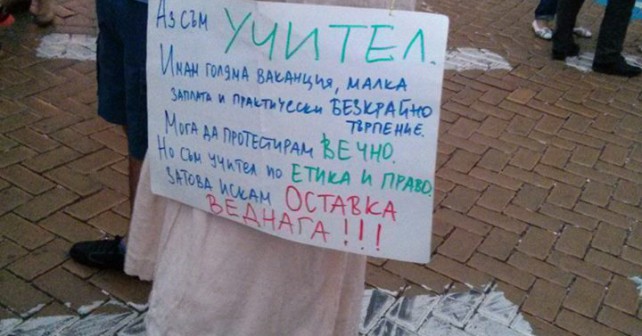 Аз съм УЧИТЕЛ.
Имам голяма ваканция, малка
заплата и практически БЕЗКРАЙНО
ТЪРПЕНИЕ.
Мога да протестирам ВЕЧНО.
Но съм учител по ЕТИКА И ПРАВО.
Затова искам ОСТАВКА
ВЕДНАГА!!!